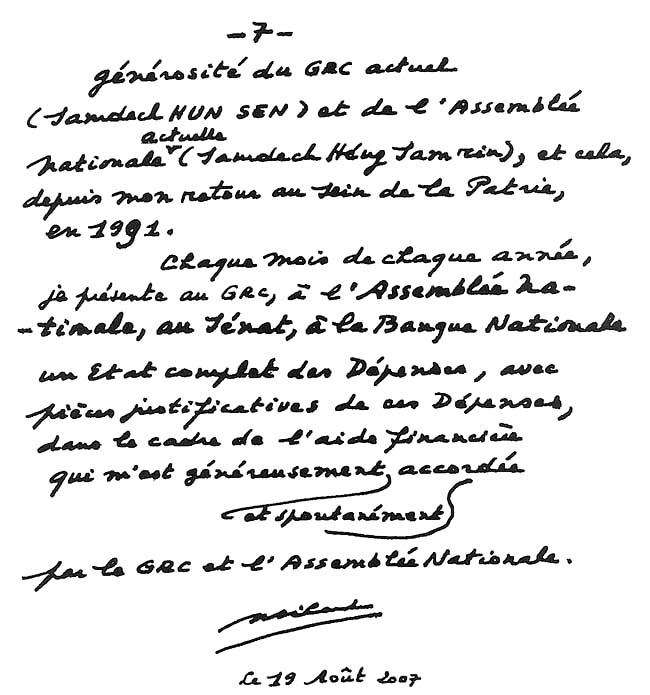 -7-
générosité du GRC actuel
(Samdech HUN SEN) et de l'Assemblée
actuelle
Nationale (Samdech Héng Samrin), et cela,
depuis mon retour au sein de la Patrie,
en 1991.
Chaque mois de chaque année,
je présente au GRC, à l'Assemblée Na-
-tionale, au Sénat, à la Banque Nationale
un Etat complet des Dépenses, avec
pièces justificatives de ces Dépenses,
dans le cadre de l'aide financière
qui m'est généreusement accordée
et spontanément
par le GRC et l'Assemblée Nationale.
Le 19 Août 2007